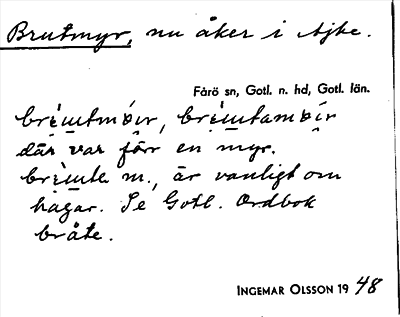 Brutmyr, nu åker i Ajke.
Fårö sn, Gotl. n. hd, Gotl. län.
där var förr en myr.
m., är vanligt om
hagar. Se Gotl. Ordbok
bråte.
INGEMAR OLSSON 1948